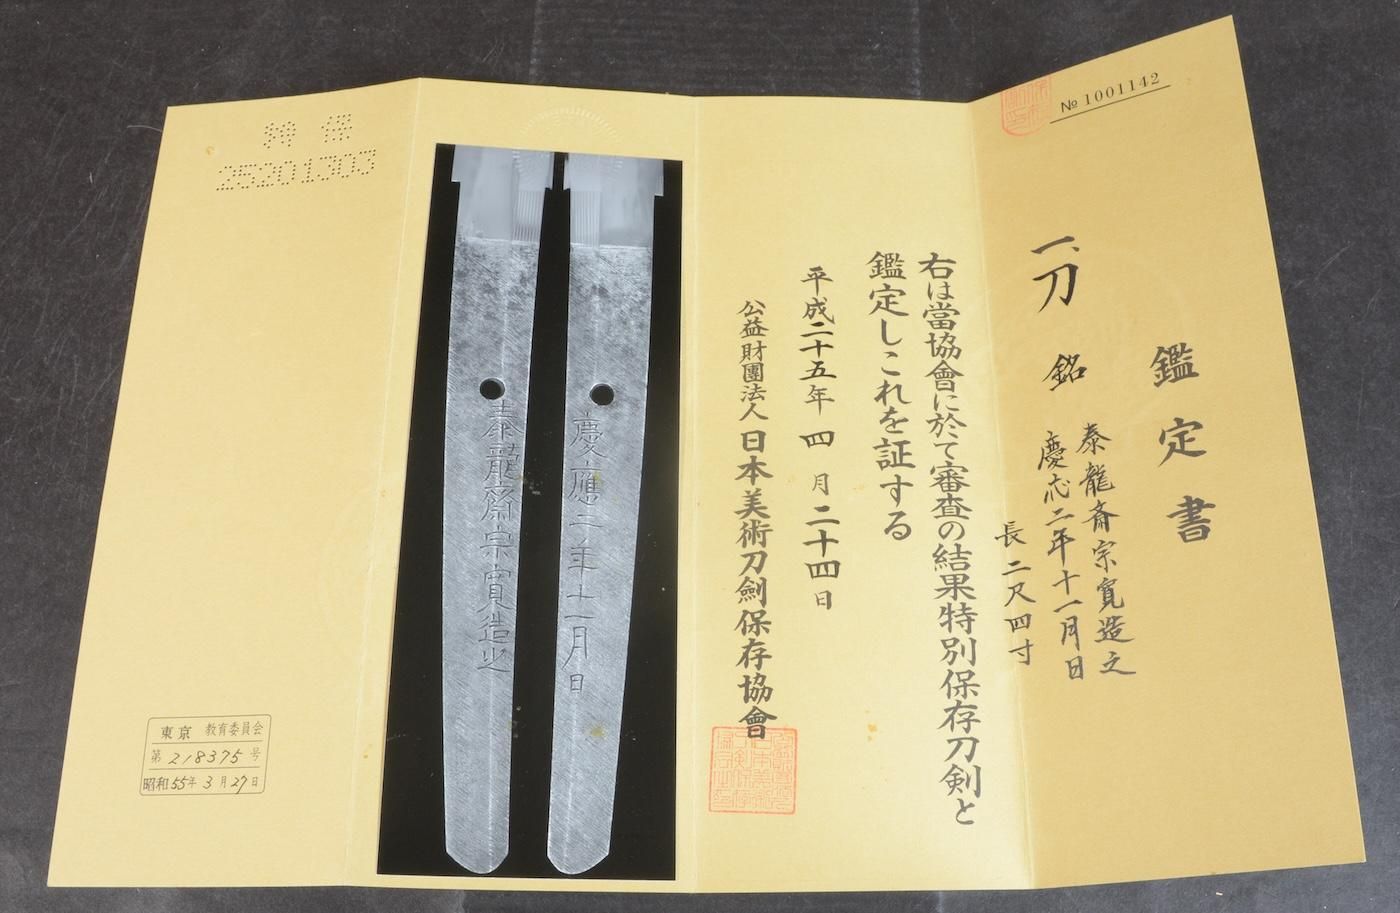 № 1001142
鑑定書
一、刀 銘 泰龍斎宗寛造之
慶応二年十一月日
長 二尺四寸
右は當協會に於て審査の結果特別保存刀剣と
鑑定しこれを証する
平成二十五年 四 月 二十四日
公益財團法人 日本美術刀劍保存協會
慶應二年十一月日
泰龍斎宗寛造之
特保
25201303
東京 教育委員会
第 218375 号
昭和55年3月27日